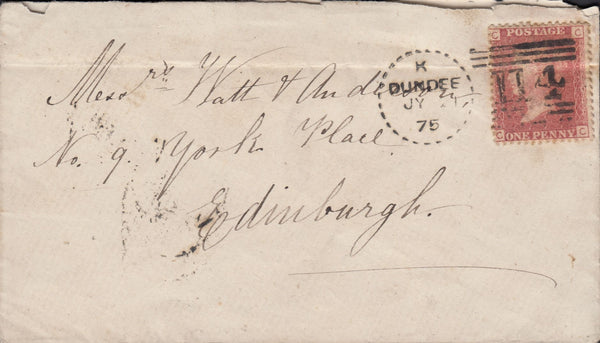 C C
POSTAGE
114
ONE PENNY
C C
K
DUNDEE
JY
75
Messrs Watt & Anderson
No. 9 York Place
Edinburgh.